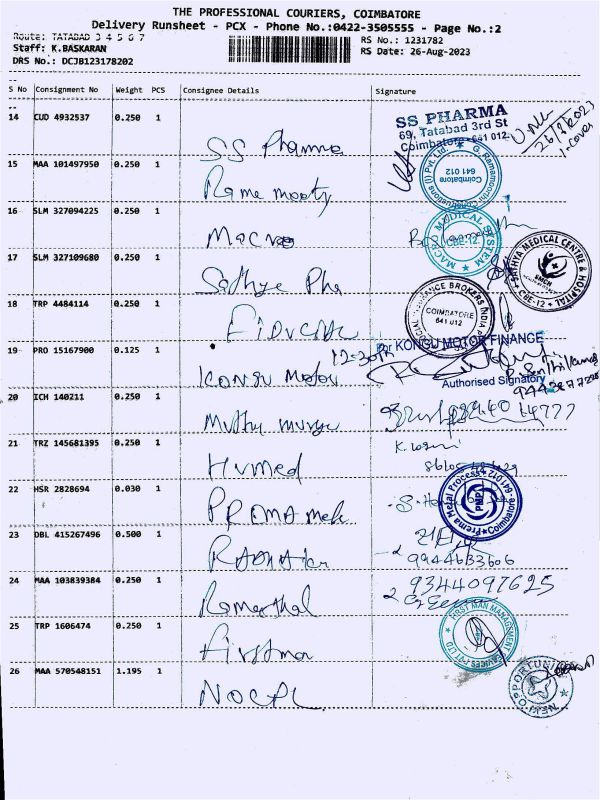 THE PROFESSIONAL COURIERS, COIMBATORE
Delivery Runsheet - PCX - Phone No.:0422-3505555 - Page No.:2
Route: TATABAD 3 4 5 6 7
RS No.: 1231782
Staff: K.BASKARAN
RS Date: 26-Aug-2023
DRS No.: DCJB123178202
S No Consignment No Weight PCS Consignee Details Signature
14 CUD 4932537 0.250 1
SS PHARMA
69, Tatabad 3rd St
Coimbatore - 641 012.
26/8/2023
SS Pharma
15 MAA 101497950 0.250 1
G. Ramamoorthi Constructions (I) Pvt. Ltd.
Coimbatore
641 012
Rama moorty
16 SLM 327094225 0.250 1
MACRO MEDICAL SYSTEM
CBE-12
Macro
17 SLM 327109680 0.250 1
SATHYA MEDICAL CENTRE & HOSPITAL
CBE-12
Sathya Pha
18 TRP 4484114 0.250 1
INSURANCE BROKERS INDIA
COIMBATORE
641 012
19 PRO 15167900 0.125 1
12-30
For KONGU MOTOR FINANCE
Authorised Signatory
Kongu Motor
20 ICH 140211 0.250 1
Muthu
21 TRZ 145681395 0.250 1
Humed
22 HSR 2828694 0.030 1
Prema Metal Process
PMP
Coimbatore-641 012
PREMA
23 DBL 415267496 0.500 1
9944633606
24 MAA 103839384 0.250 1
9344097625
25 TRP 1606474 0.250 1
FIRST MAN MANAGEMENT SERVICES PVT LTD
Firstman
26 MAA 570548151 1.195 1
NEW OPPORTUNITI
NOCPL